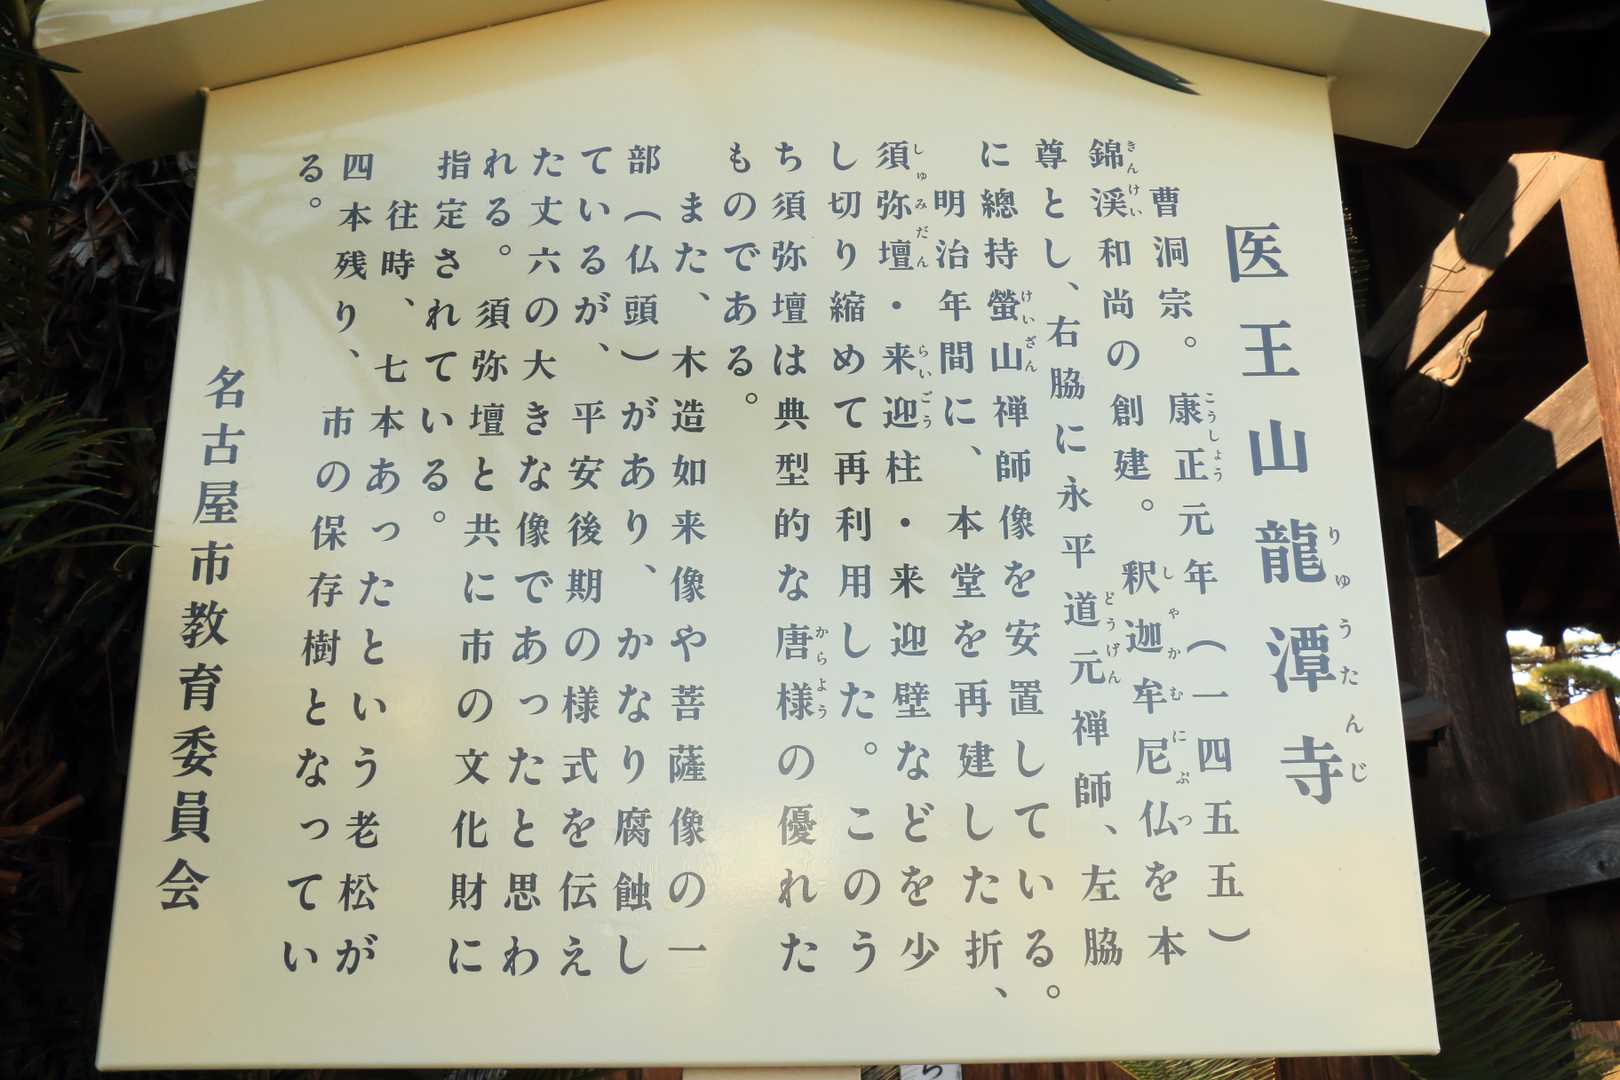 医王山龍潭寺
曹洞宗。康正元年(一四五五)
錦渓和尚の創建。釈迦牟尼仏を本
尊とし、右脇に永平道元禅師、左脇
に總持螢山禅師像を安置している。
明治年間に、本堂を再建した折、
須弥壇・来迎柱・来迎壁などを少
し切り縮めて再利用した。このう
ち須弥壇は典型的な唐様の優れた
ものである。
また、木造如来像や菩薩像の一
部(仏頭)があり、かなり腐蝕し
ているが、平安後期の様式を伝え
た丈六の大きな像であったと思わ
れる。須弥壇と共に市の文化財に
指定されている。
往時、七本あったという老松が
四本残り、市の保存樹となってい
る。
名古屋市教育委員会